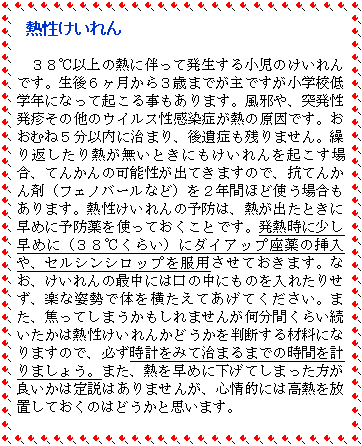 熱性けいれん
３８℃以上の熱に伴って発生する小児のけいれん
です。生後６ヶ月から３歳までが主ですが小学校低
学年になって起こる事もあります。風邪や、突発性
発疹その他のウイルス性感染症が熱の原因です。お
おむね５分以内に治まり、後遺症も残りません。繰
り返したり熱が無いときにもけいれんを起こす場
合、てんかんの可能性が出てきますので、抗てんか
ん剤（フェノバールなど）を２年間ほど使う場合も
あります。熱性けいれんの予防は、熱が出たときに
早めに予防薬を使っておくことです。発熱時に少し
早めに（３８℃くらい）にダイアップ座薬の挿入
や、セルシンシロップを服用させておきます。な
お、けいれんの最中には口の中にものを入れたりせ
ず、楽な姿勢で体を横たえてあげてください。ま
た、焦ってしまうかもしれませんが何分間くらい続
いたかは熱性けいれんかどうかを判断する材料にな
りますので、必ず時計をみて治まるまでの時間を計
りましょう。また、熱を早めに下げてしまった方が
良いかは定説はありませんが、心情的には高熱を放
置しておくのはどうかと思います。